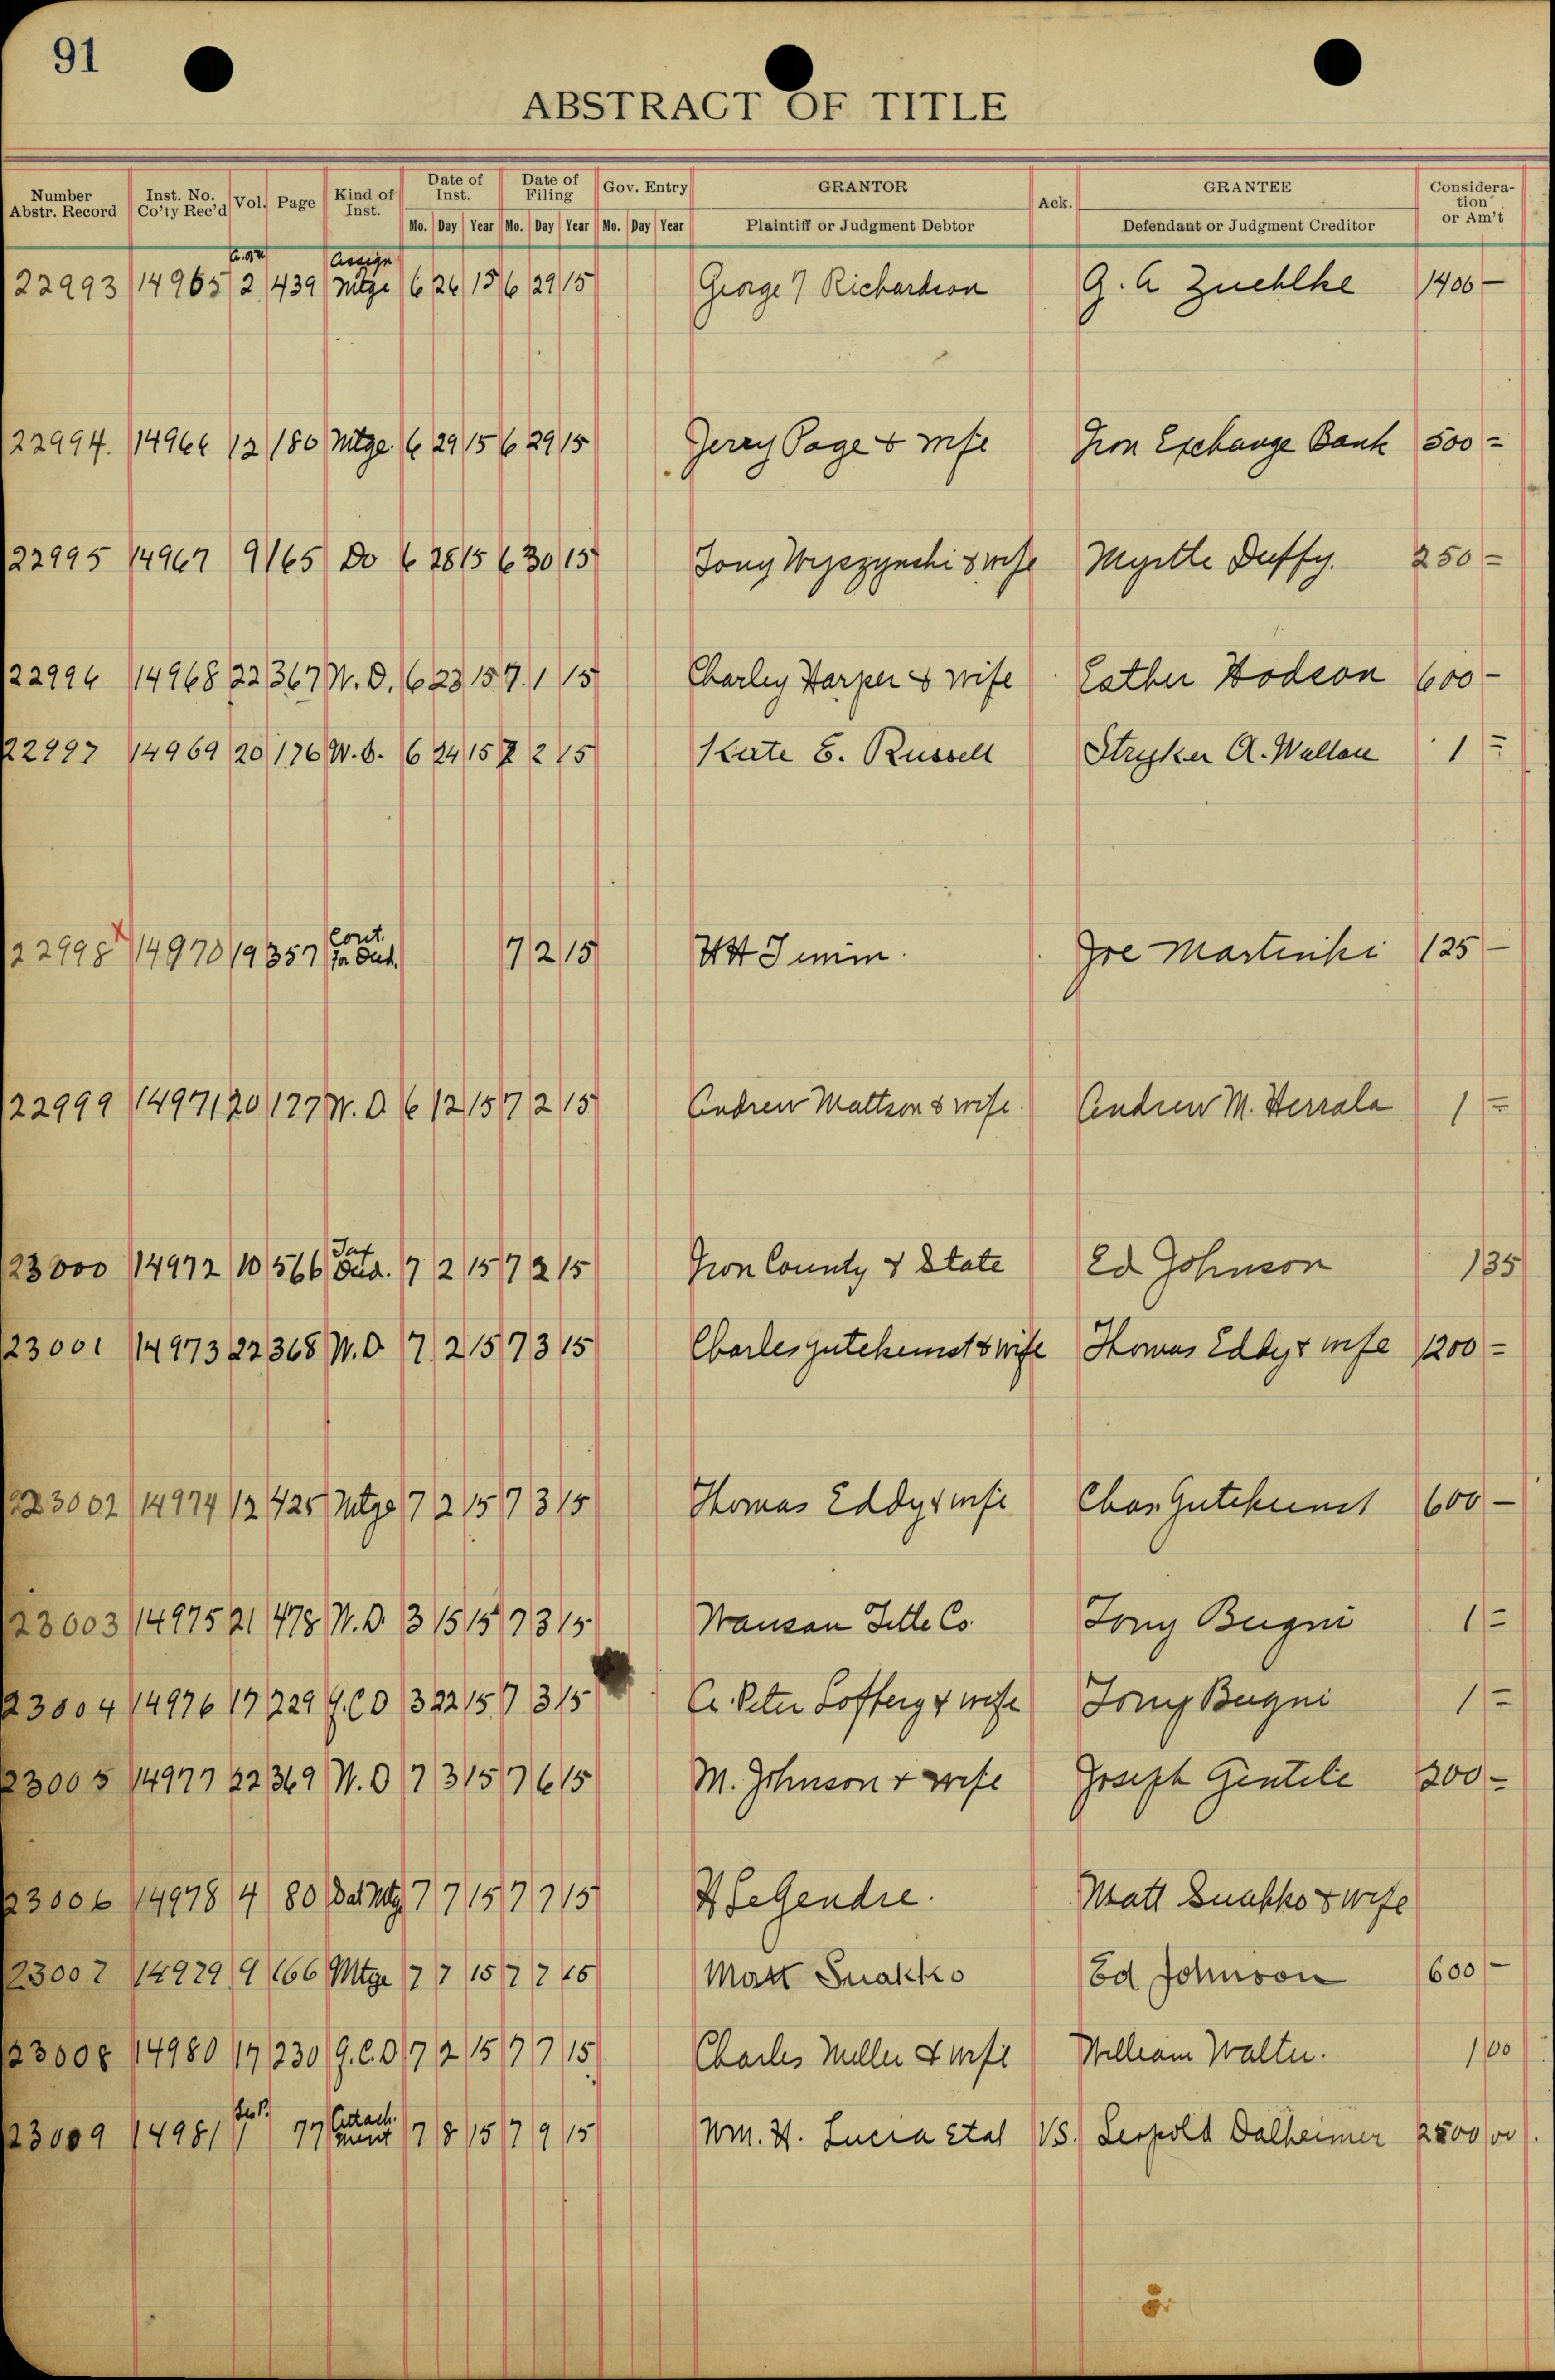 91
ABSTRACT OF TITLE
Number Abstr. Record | Inst. No. Co'ty Rec'd | Vol. | Page | Kind of Inst. | Date of Inst. | Date of Filing | Gov. Entry | GRANTOR | Ack. | GRANTEE | Considera-tion or Am't
Mo. Day Year Mo. Day Year Mo. Day Year Plaintiff or Judgment Debtor Defendant or Judgment Creditor
Assign
22993 14965 2 439 Mtge 6 26 15 6 29 15 George Richardson G. A Zuehlke 1400 -
22994. 14966 12 180 Mtge. 6 29 15 6 29 15 Jerry Page & wife Iron Exchange Bank 500 =
22995 14967 9 165 Do 6 28 15 6 30 15 Tony Wyszynski & wife Myrtle Duffy. 250 =
22996 14968 22 367 W. D. 6 23 15 7. 1 15 Charley Harper & wife Esther Hodson 600 -
22997 14969 20 176 W. D. 6 24 15 7 2 15 Kate E. Russell Stryker A. Wallace 1 =
Cont.
22998 x 14970 19 357 for Deed. 7 2 15 Joe Martinki 125 -
22999 14971 20 177 W. D 6 12 15 7 2 15 Andrew Mattson & wife. Andrew M. Herrala 1 =
Tax
23000 14972 10 566 Deed. 7 2 15 7 2 15 Iron County & State Ed Johnson 135
23001 14973 22 368 W. D 7. 2 15 7 3 15 Charles Gutekunst & wife Thomas Eddy & wife 1200 =
23002 14974 12 425 Mtge 7 2 15 7 3 15 Thomas Eddy & wife Chas Gutekunst 600 -
23003 14975 21 478 W. D. 3 15 15 7 3 15 Wausau Title Co. Tony Bugni 1 =
23004 14976 17 229 Q. C D 3 22 15 7 3 15 A. Peter Lofberg & wife Tony Bugni 1 =
23005 14977 22 369 W. D 7 3 15 7 6 15 M. Johnson & wife Joseph Gentile 200 -
23006 14978 4 80 Sat Mtg 7 7 15 7 7 15 H LeGendre. Matt Suakko & wife
23007 14979 9 166 Mtge 7 7 15 7 7 15 Matt Suakko Ed Johnson 600 -
23008 14980 17 230 Q. C. D 7 2 15 7 7 15 Charles Miller & wife William Walter. 1 00
Attach.
23009 14981 1 77 ment 7 8 15 7 9 15 Wm. H. Lucia et al VS. Leopold Dalheimer 2500 00